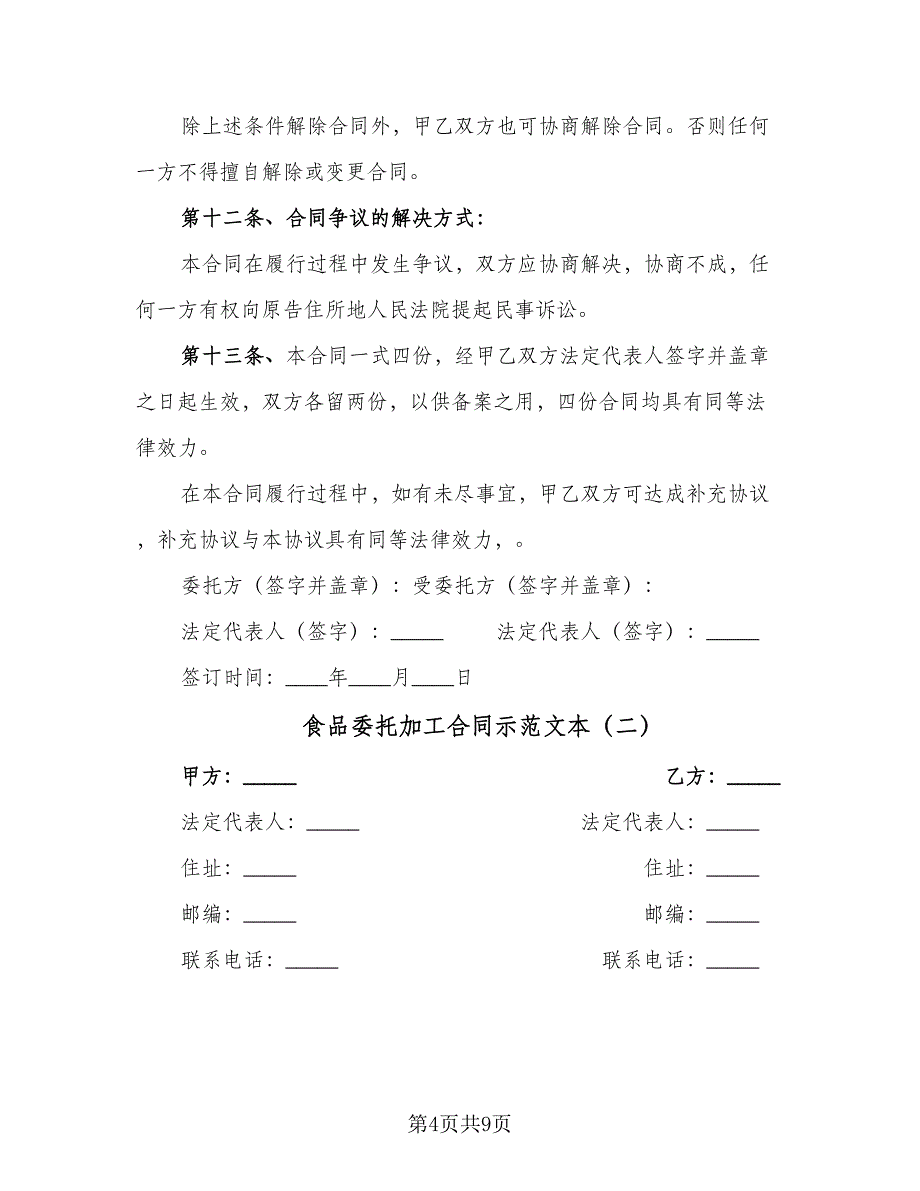 除上述条件解除合同外，甲乙双方也可协商解除合同。否则任何
一方不得擅自解除或变更合同。
第十二条、合同争议的解决方式：
本合同在履行过程中发生争议，双方应协商解决，协商不成，任
何一方有权向原告住所地人民法院提起民事诉讼。
第十三条、本合同一式四份，经甲乙双方法定代表人签字并盖章
之日起生效，双方各留两份，以供备案之用，四份合同均具有同等法
律效力。
在本合同履行过程中，如有未尽事宜，甲乙双方可达成补充协议
，补充协议与本协议具有同等法律效力，。
委托方（签字并盖章）：受委托方（签字并盖章）：
法定代表人（签字）：_____ 法定代表人（签字）：_____
签订时间：____年____月____日
食品委托加工合同示范文本（二）
甲方：_____ 乙方：_____
法定代表人：_____ 法定代表人：_____
住址：_____ 住址：_____
邮编：_____ 邮编：_____
联系电话：_____ 联系电话：_____
第4页共9页